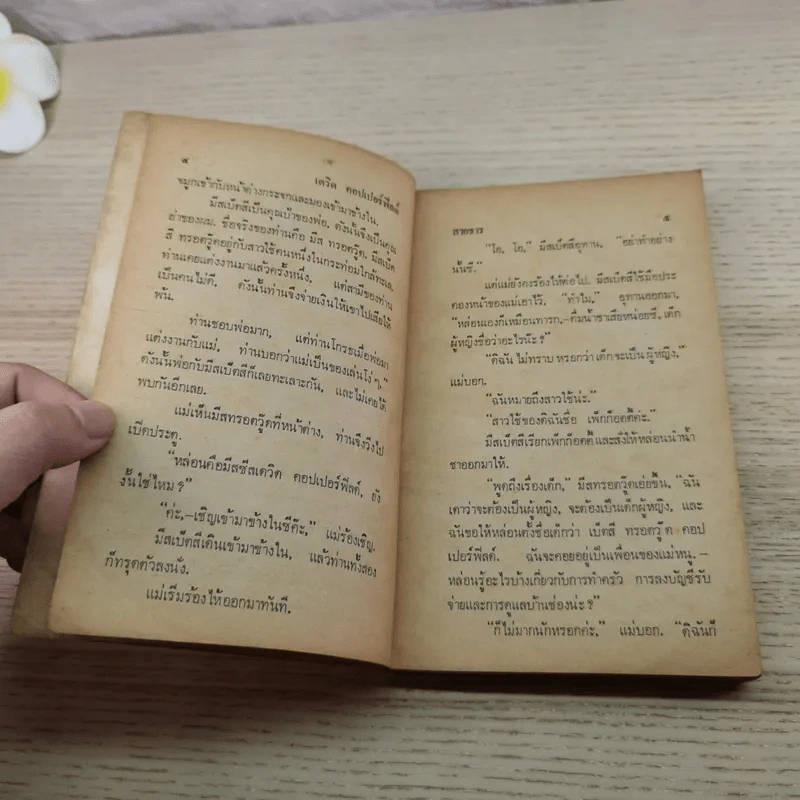 ๔
เดวิด คอปเปอร์ฟีลด์
จมูกเข้ากับหน้าต่างกระจกและมองเข้ามาข้างใน.
มีสเบ็ตสีเป็นคุณป้าของพ่อ. ดังนั้นจึงเป็นคุณ
ย่าของผม. ชื่อจริงของท่านคือ มีส ทรอตวู๊ด. มีสเบ็ต
สี ทรอตวู๊ดอยู่กับสาวใช้คนหนึ่งในกระท่อมใกล้ทะเล.
ท่านเคยแต่งงานมาแล้วครั้งหนึ่ง, แต่สามีของท่าน
เป็นคนไม่ดี. ดังนั้นท่านจึงจ่ายเงินให้เขาไปเสียให้
พ้น.
ท่านชอบพ่อมาก, แต่ท่านโกรธเมื่อพ่อมา
แต่งงานกับแม่, ท่านบอกว่าแม่เป็นของเล่นโง่ ๆ,”
ดังนั้นพ่อกับมีสเบ็ตสีก็เลยทะเลาะกัน, และไม่เคยได้
พบกันอีกเลย.
แม่เห็นมีสทรอตวู๊ดที่หน้าต่าง, ท่านจึงวิ่งไป
เปิดประตู.
“หล่อนคือมีสซีสเดวิด คอปเปอร์ฟีลด์, ยัง
งั้นใช่ไหม ?”
“ค่ะ,—เชิญเข้ามาข้างในซีค๊ะ,” แม่ร้องเชิญ.
มีสเบ็ตสีเดินเข้ามาข้างใน, แล้วท่านทั้งสอง
ก็ทรุดตัวลงนั่ง.
แม่เริ่มร้องไห้ออกมาทันที.
สายธาร
๕
“โอ. โอ,” มีสเบ็ตสีอุทาน, “อย่าทำอย่าง
นั้นซี.”
แต่แม่ยังคงร้องไห้ต่อไป. มีสเบ็ตสีใช้มือประ
คองหน้าของแม่เอาไว้. “ทำไม,” อุทานออกมา.
“หล่อนเองก็เหมือนทารก,—ดื่มน้ำชาเสียหน่อยซี, เด็ก
ผู้หญิงชื่อว่าอะไรน๊ะ ?”
“ดิฉัน ไม่ทราบ หรอกว่า เด็ก จะเป็น ผู้หญิง,”
แม่บอก.
“ฉันหมายถึงสาวใช้น่ะ.”
“สาวใช้ของดิฉันชื่อ เพ็กก็อตตี้ค่ะ.”
มีสเบ็ตสีเรียกเพ็กก็อตตี้ และสั่งให้หล่อนนำน้ำ
ชาออกมาให้.
“พูดถึงเรื่องเด็ก,” มีสทรอตวู๊ดเอ่ยขึ้น, “ฉัน
เดาว่าจะต้องเป็นผู้หญิง, จะต้องเป็นเด็กผู้หญิง, และ
ฉันขอให้หล่อนตั้งชื่อเด็กว่า เบ็ตสี ทรอตวู๊ด คอป
เปอร์ฟีลด์. ฉันจะคอยอยู่เป็นเพื่อนของแม่หนู.—
หล่อนรู้อะไรบ้างเกี่ยวกับการทำครัว การลงบัญชีรับ
จ่ายและการดูแลบ้านช่องน่ะ ?”
“ก็ไม่มากนักหรอกค่ะ,” แม่บอก. “ดิฉันก็